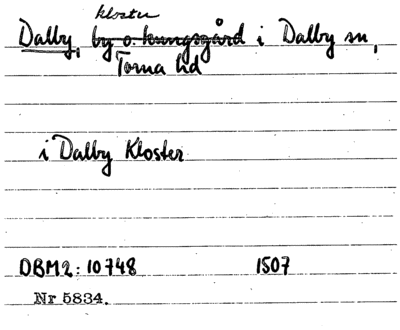 kloster
Dalby, by o. kungsgård i Dalby sn,
Torna hd
i Dalby Kloster
DBM2: 10748 1507
Nr 5834.